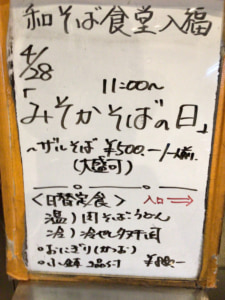 和そば食堂入福
4/28
11:00〜
「みそかそばの日」
〜ザルそば ¥500.-/一人前.
(大盛可)
〈日替定食〉 入口→
温)肉そばうどん
冷)冷や
○おにぎり(かつお)
○小鉢 2品付
¥880-